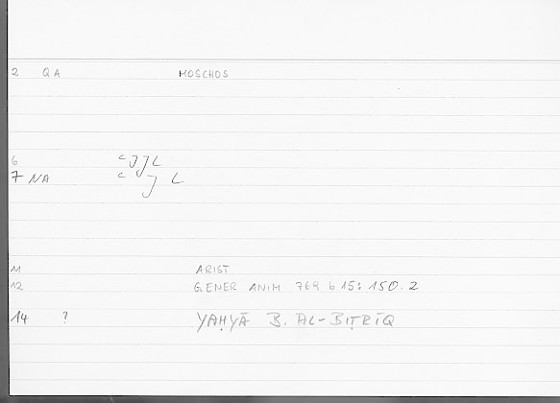 2 QA MOSCHOS
6 ʿJJL
7 NA ʿJL
M ARIST
12 GENER ANIM 769 b 15: 150.2
14 ? YAḤYĀ B. AL-BIṬRĪQ